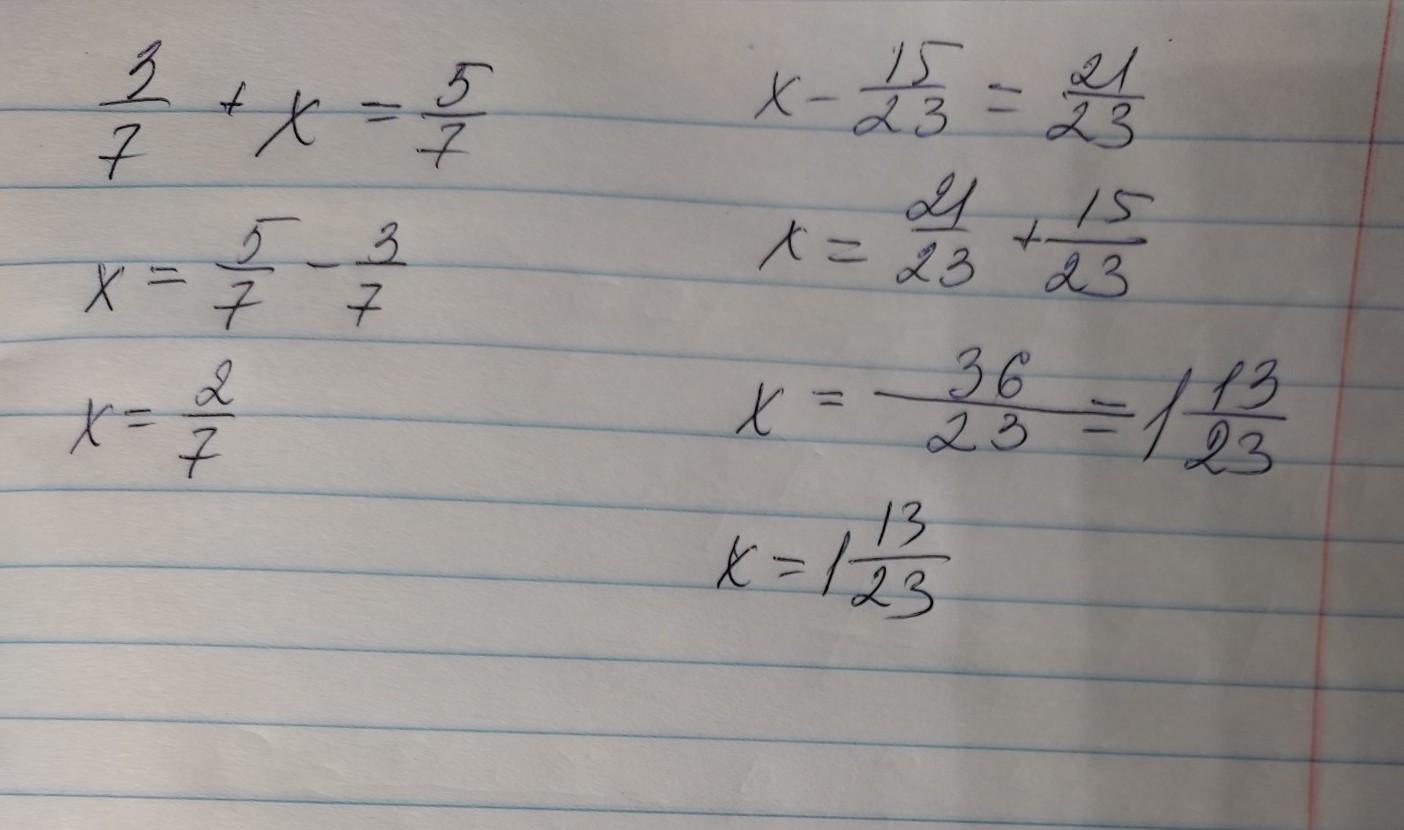 3/7 + x = 5/7
x = 5/7 - 3/7
x = 2/7
x - 15/23 = 21/23
x = 21/23 + 15/23
x = 36/23 = 1 13/23
x = 1 13/23